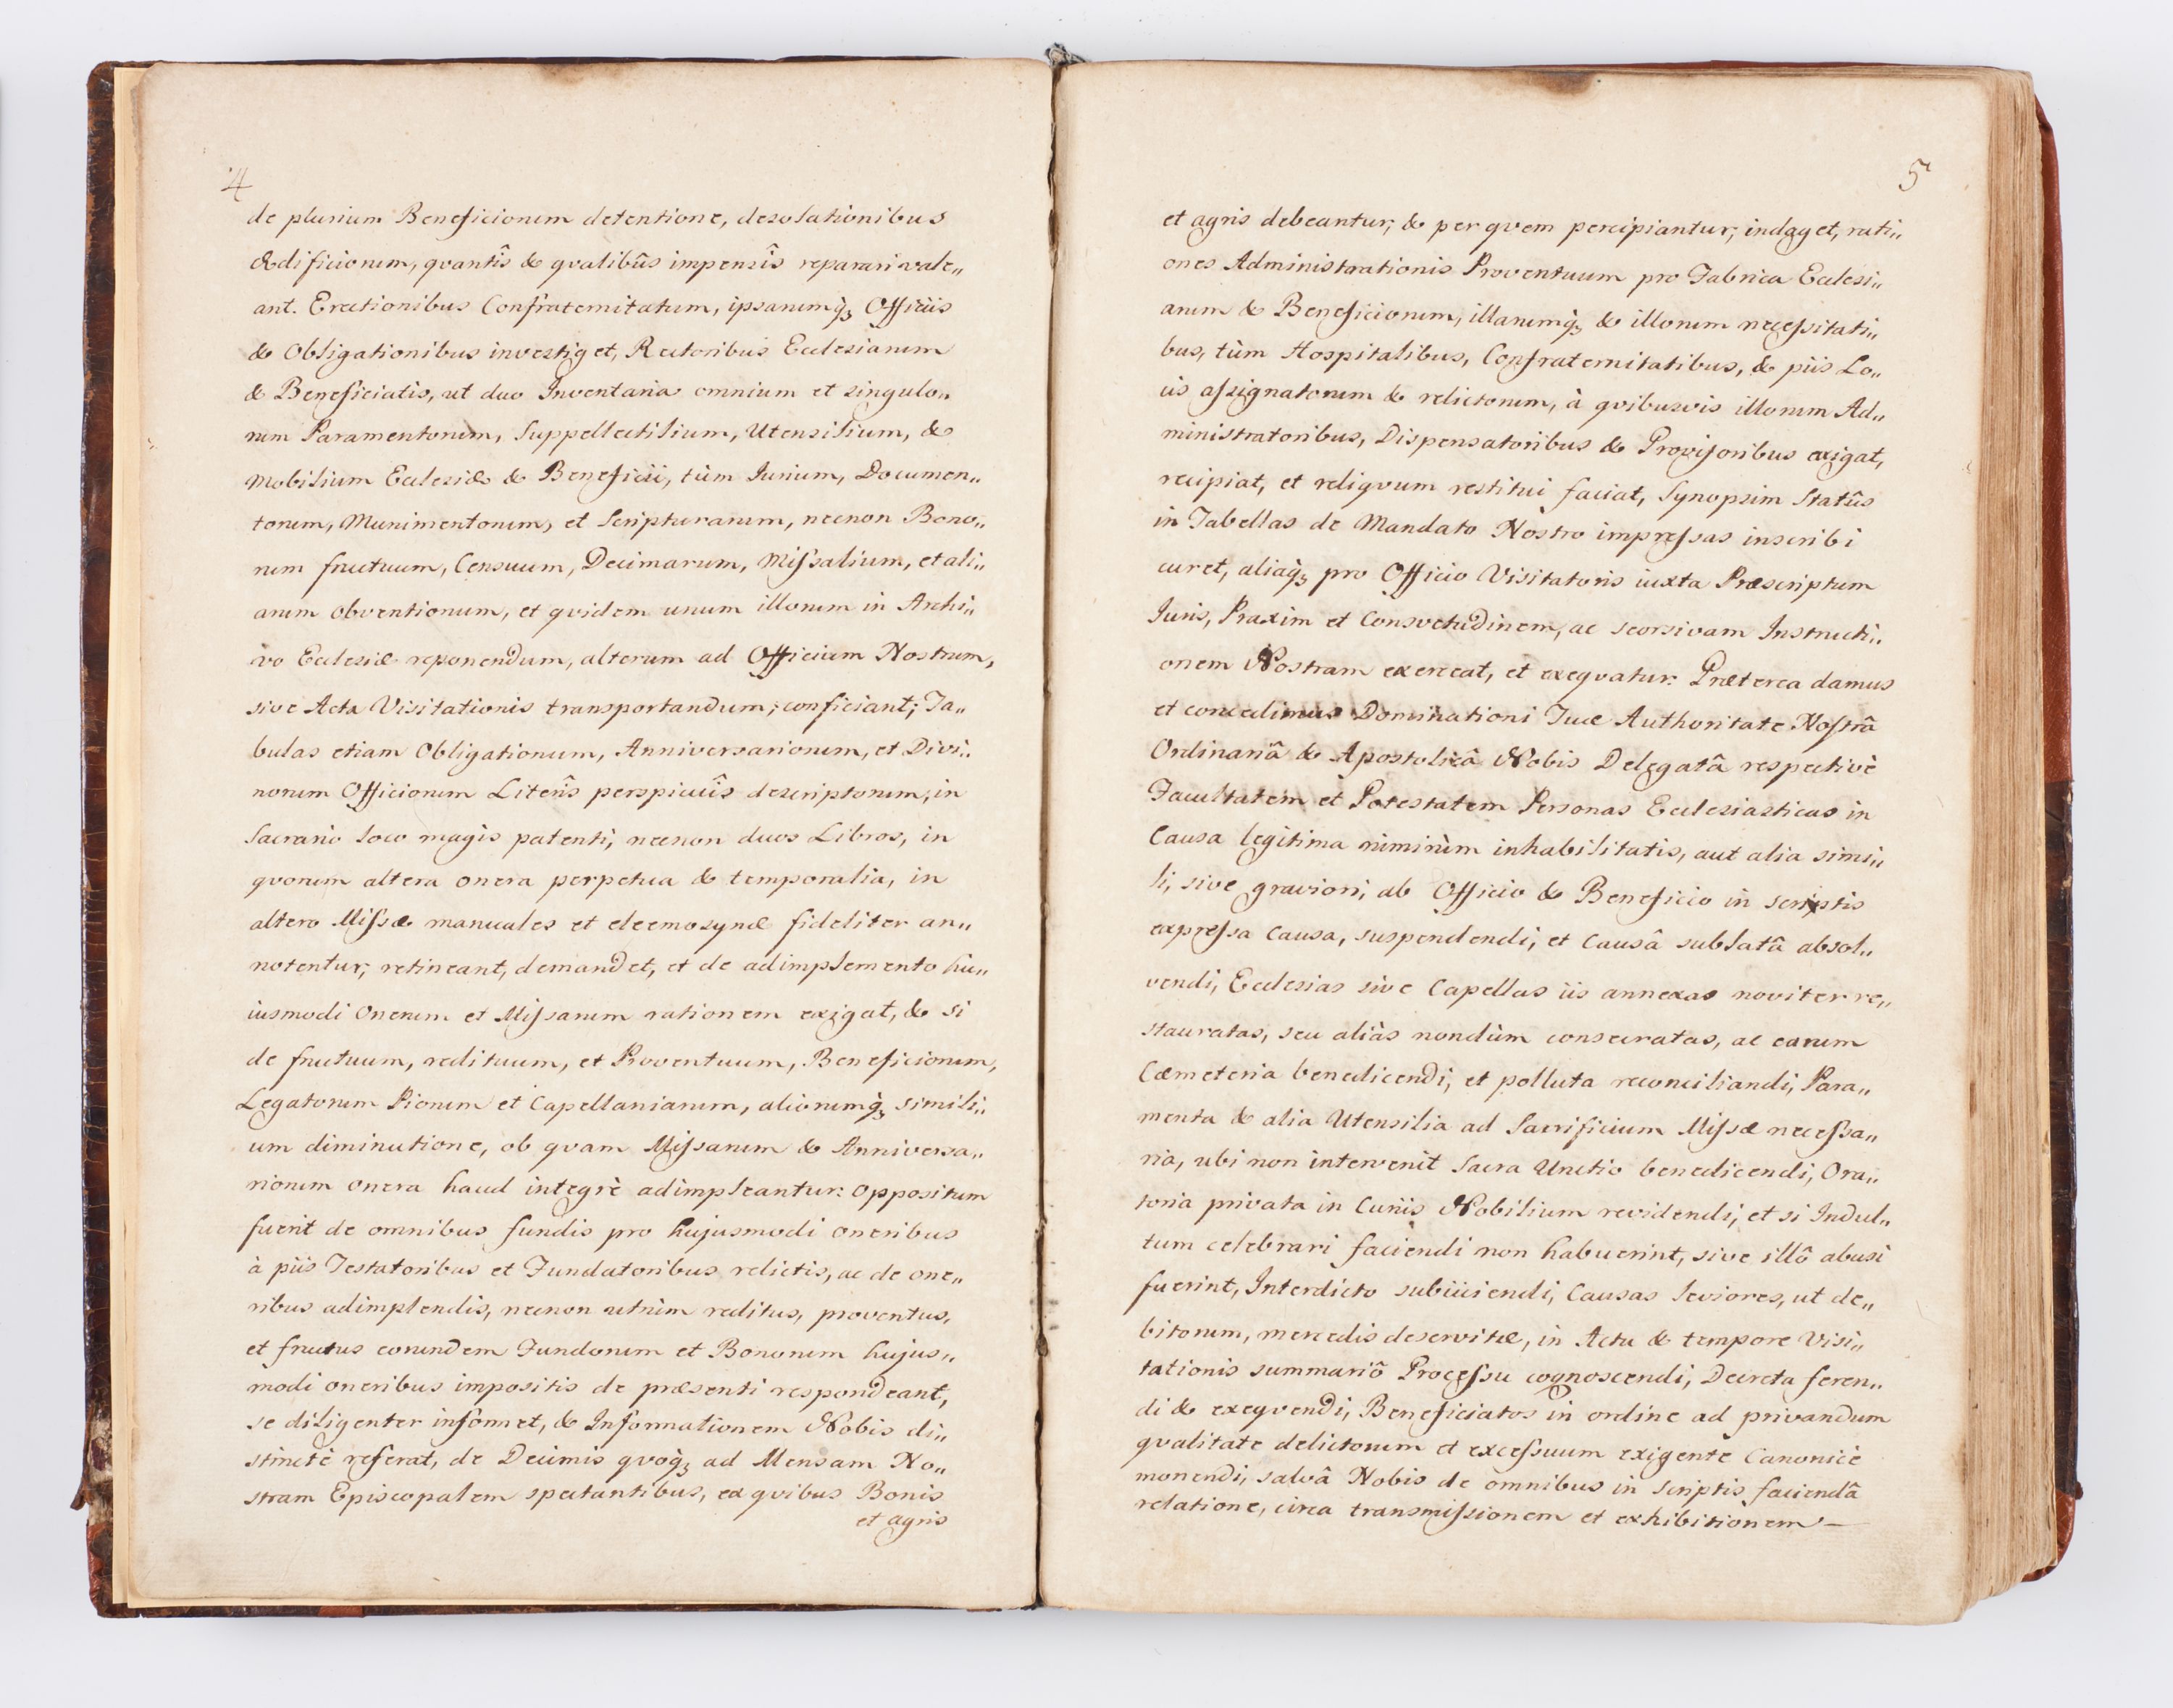 4
de plurium Beneficiorum detentione, desolationibus
Ædificiorum, qvantîs & qvalibûs impensîs reparari vale„
ant. Erectionibus Confraternitatum, ipsarumq̀ꝫ Officiis
& Obligationibus investiget, Rectoribus Ecclesiarum
& Beneficiatis, ut duo Inventaria omnium et singulo„
rum Paramentorum, Suppellectilium, Utensilium, &
Mobilium Ecclesiæ & Beneficii, tùm Iurium, Documen„
torum, Munimentorum, et Scripturarum, necnon Bono„
rum fructuum, Censuum, Decimarum, Miſsalium, et ali„
arum obventionum, et qvidem unum illorum in Archi„
vo Ecclesiæ reponendum, alterum ad Officium Nostrum,
sive Acta Visitationis transportandum, conficiant; Ta„
bulas etiam Obligationum, Anniversariorum, et Divi„
norum Officiorum Literîs perspicuîs descriptorum, in
Sacrario loco magis patenti, necnon duos Libros, in
qvorum altera onera perpetua & temporalia, in
altero Miſsæ manuales et eleemosynæ fideliter an„
notentur, retineant, demandet, et de adimplemento hu„
iusmodi Onerum et Miſsarum rationem exigat, & si
de fructuum, redituum, et Proventuum, Beneficiorum,
Legatorum Piorum et Capellaniarum, aliorumq̀ꝫ simili„
um diminutione, ob qvam Miſsarum & Anniversa„
riorum onera haud integrè adimpleantur: oppositum
fuerit de omnibus fundis pro hujusmodi oneribus
à piis Testatoribus et Fundatoribus relictis, ac de one„
ribus adimplendis, necnon utrùm reditus, proventus,
et fructus eorundem Fundorum et Bonorum hujus„
modi oneribus impositis de præsenti respondeant,
se diligenter informet, & Informationem Nobis di„
stinctè referat, de Decimis qvoq̀ꝫ ad Mensam No„
stram Episcopalem spectantibus, ex qvibus Bonis
et agris
5
et agris debeantur, & per qvem percipiantur, indaget, rati„
ones Administrationis Proventuum pro Fabrica Ecclesi„
arum & Beneficiorum, illarumq̀ꝫ & illorum neceſsitati„
bus, tùm Hospitalibus, Confraternitatibus, & piis Lo„
cis aſsignatorum & relictorum, à qvibusvis illorum Ad„
ministratoribus, Dispensatoribus & Proviſoribus exigat,
recipiat, et reliqvum restitui faciat, Synopsim Statûs
in Tabellas de Mandato Nostro impreſsas inscribi
curet, aliaq̀ꝫ pro Officio Visitatoris iuxta Præscriptum
Iuris, Praxim et Consvetudinem, ac seorsivam Instructi„
onem Nostram exerceat, et exeqvatur: Præterea damus
et concedimus Dominationi Tuæ Authoritate Noſtrâ
Ordinariâ & Apostolicâ Nobis Delegatâ respectivè
Facultatem et Potestatem Personas Ecclesiasticas in
Causa legitima nimirùm inhabilitatis, aut alia simi„
li, sive graviori, ab Officio & Beneficio in scriptis
expreſsa causa, suspendendi, et causâ sublatâ absol„
vendi, Ecclesias sive Capellas iis annexas noviter re„
stauratas, seu aliàs nondùm consecratas, ac earum
Cæmeteria benedicendi, et polluta reconciliandi, Para„
menta & alia Utensilia ad Sacrificium Miſsæ neceſsa„
ria, ubi non intervenit Sacra Unctio benedicendi, Ora„
toria privata in Curiis Nobilium revidendi, et si Indul„
tum celebrari faciendi non habuerint, sive illô abusi
fuerint, Interdicto subiiciendi, Causas leviores, ut de„
bitorum, mercedis deservitæ, in Actu & tempore Visi„
tationis summariô Proceſsu cognoscendi, Decreta feren„
di & exeqvendi, Beneficiatos in ordine ad privandum
qvalitate delictorum et exceſsuum exigente Canonicè
monendi, salvâ Nobis de omnibus in Scriptis faciendâ
relatione, circa transmiſsionem et exhibitionem –